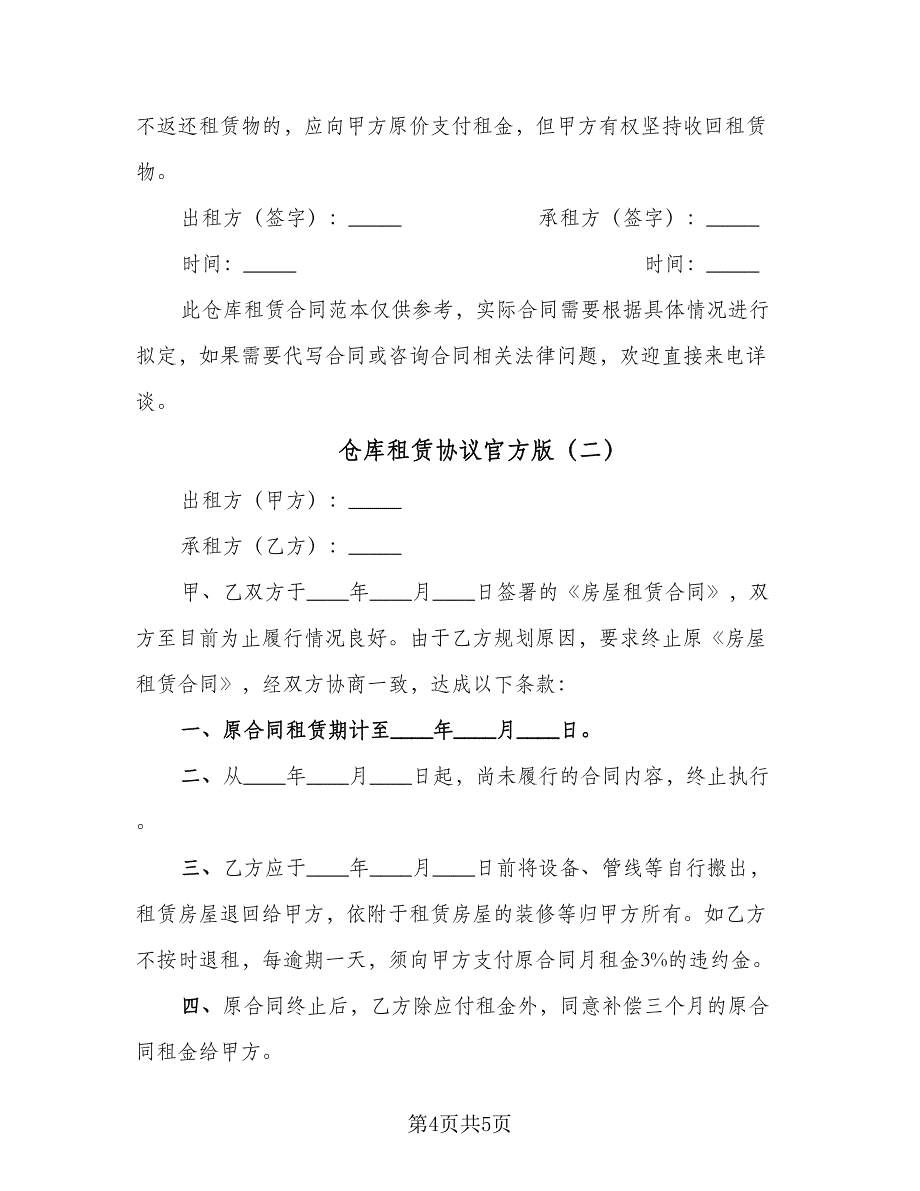 不返还租赁物的，应向甲方原价支付租金，但甲方有权坚持收回租赁
物。
出租方（签字）：_____ 承租方（签字）：_____
时间：_____ 时间：_____
此仓库租赁合同范本仅供参考，实际合同需要根据具体情况进行
拟定，如果需要代写合同或咨询合同相关法律问题，欢迎直接来电详
谈。
仓库租赁协议官方版（二）
出租方（甲方）：_____
承租方（乙方）：_____
甲、乙双方于____年____月____日签署的《房屋租赁合同》，双
方至目前为止履行情况良好。由于乙方规划原因，要求终止原《房屋
租赁合同》，经双方协商一致，达成以下条款：
一、原合同租赁期计至____年____月____日。
二、从____年____月____日起，尚未履行的合同内容，终止执行
。
三、乙方应于____年____月____日前将设备、管线等自行搬出，
租赁房屋退回给甲方，依附于租赁房屋的装修等归甲方所有。如乙方
不按时退租，每逾期一天，须向甲方支付原合同月租金3%的违约金。
四、原合同终止后，乙方除应付租金外，同意补偿三个月的原合
同租金给甲方。
第4页共5页